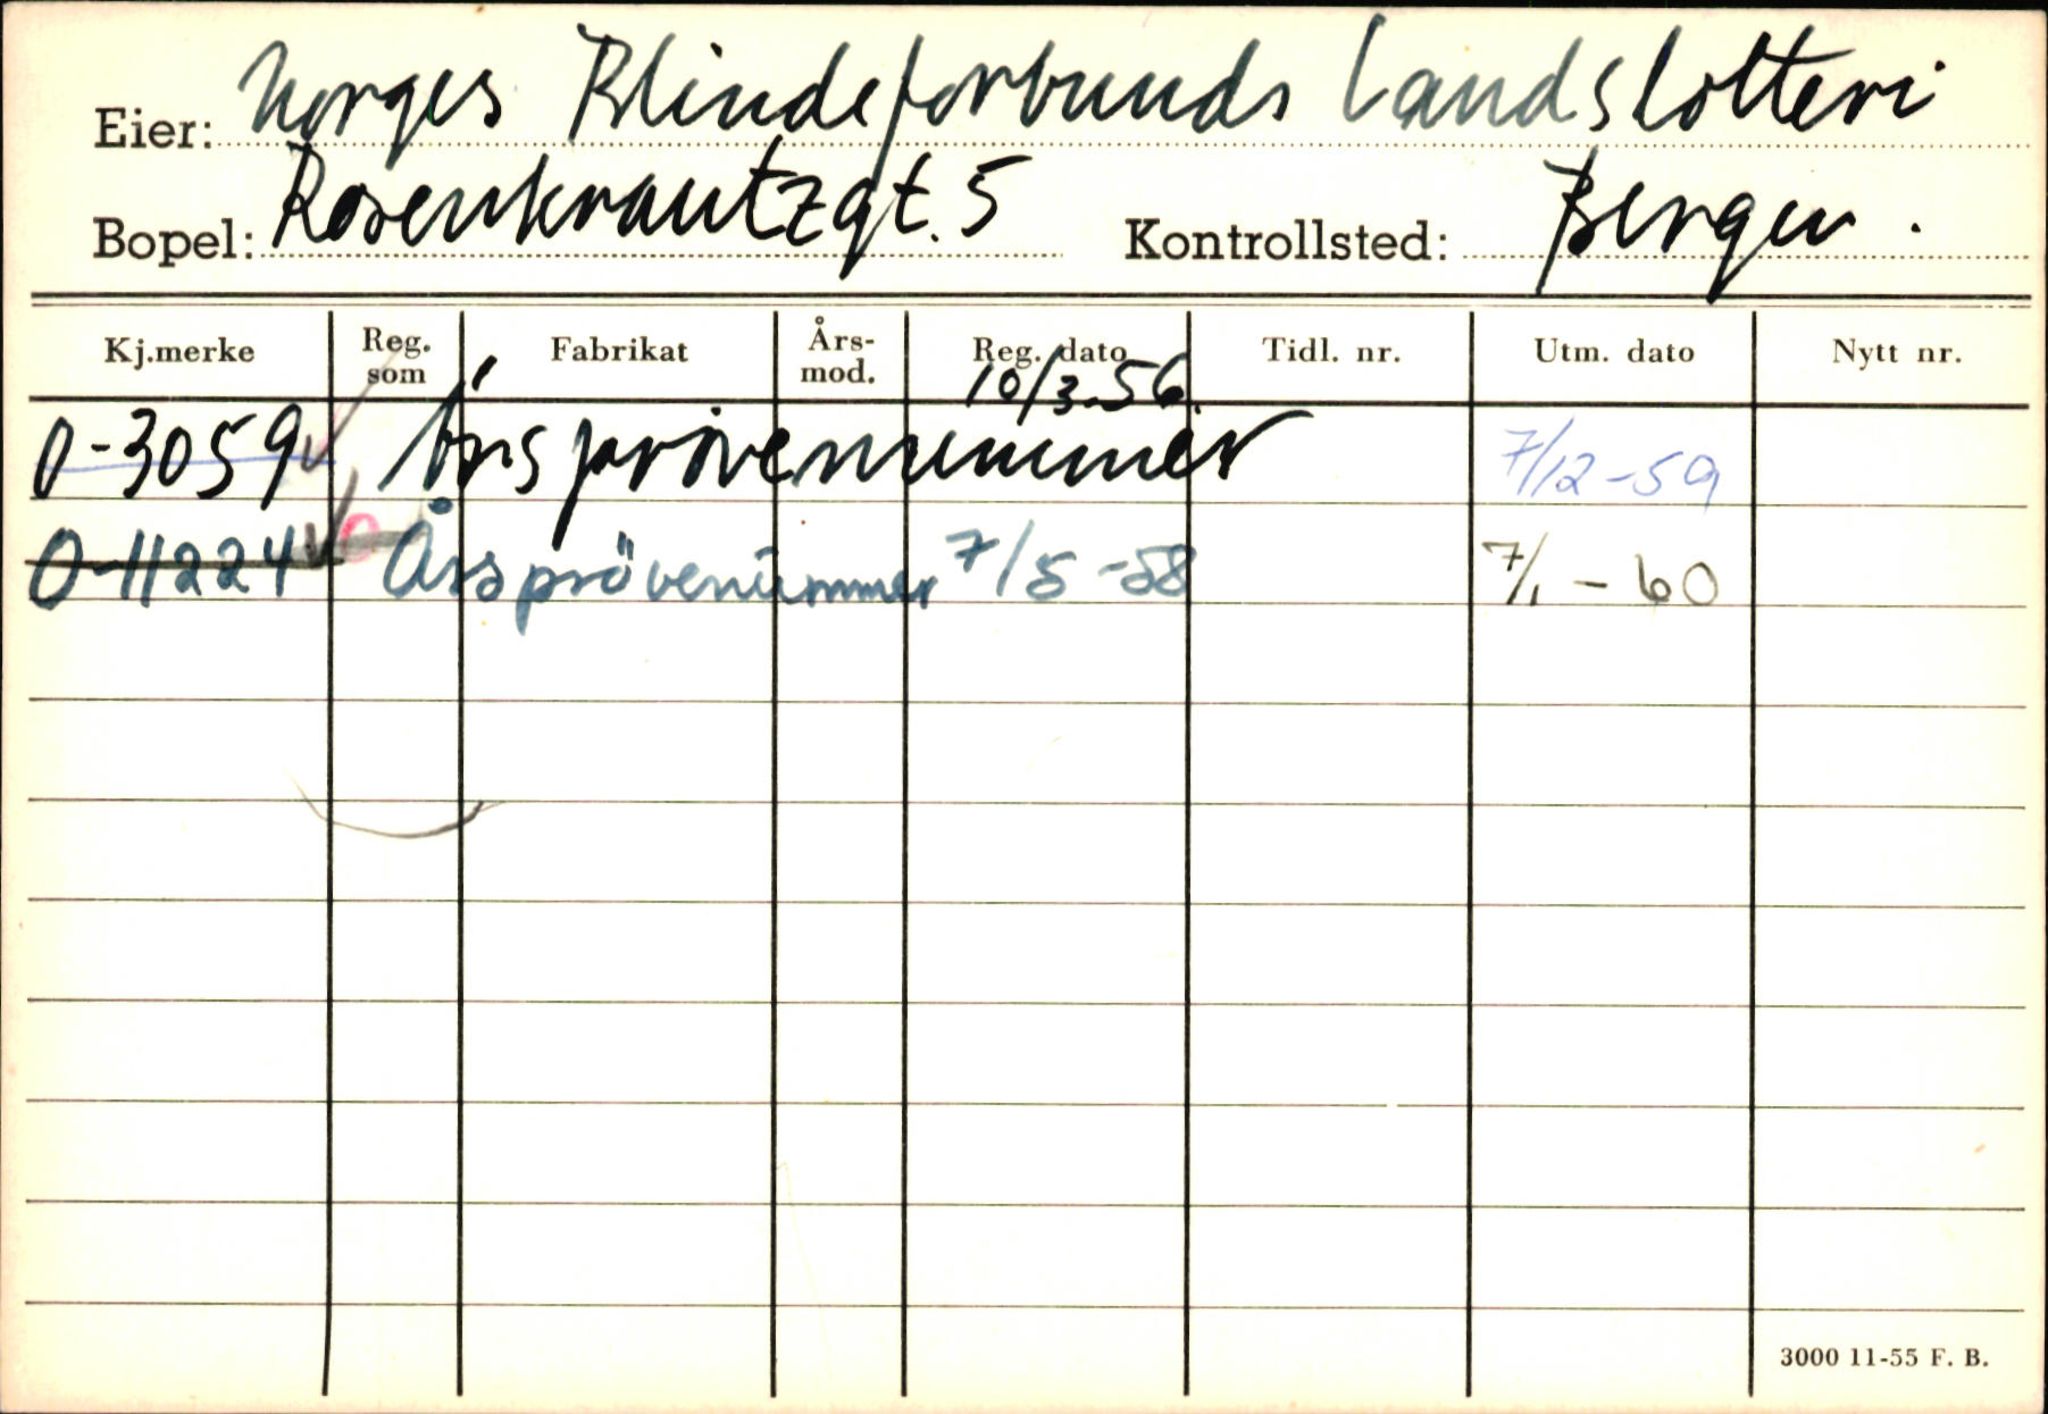 Eier: Norges Blindeforbunds Landslotteri
Bopel: Rosenkrantzgt. 5 Kontrollsted: Bergen.
Kj.merke Reg. som Fabrikat Års-mod. Reg. dato Tidl. nr. Utm. dato Nytt nr.
10/3-56.
O-3059 Årsprøvenummer 7/12-59
O-11224 Årsprövenummer 7/5-58 7/1-60
3000 11-55 F. B.